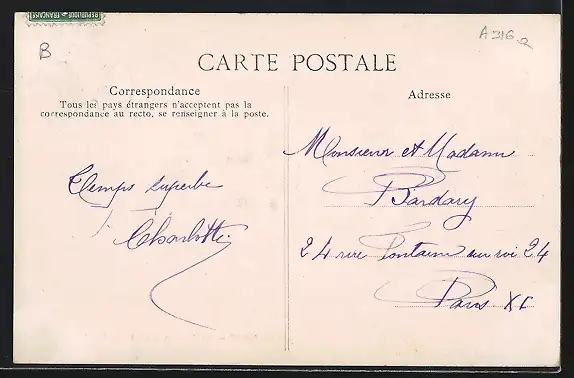 REPUBLIQUE FRANÇAISE
B
A 316
CARTE POSTALE
Correspondance
Tous les pays étrangers n'acceptent pas la
correspondance au recto, se renseigner à la poste.
Temps superbe
Charlotte
Adresse
Monsieur et Madame
Bardary
24 rue Fontaine au roi 24
Paris XI